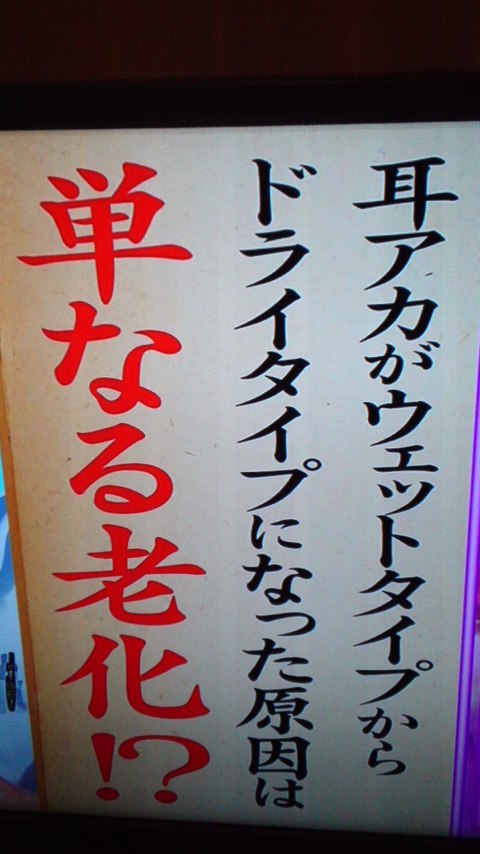 耳アカがウェットタイプから
ドライタイプになった原因は
単なる老化!?